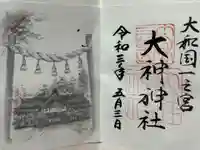 大和国一之宮
大神神社
令和三年五月三日